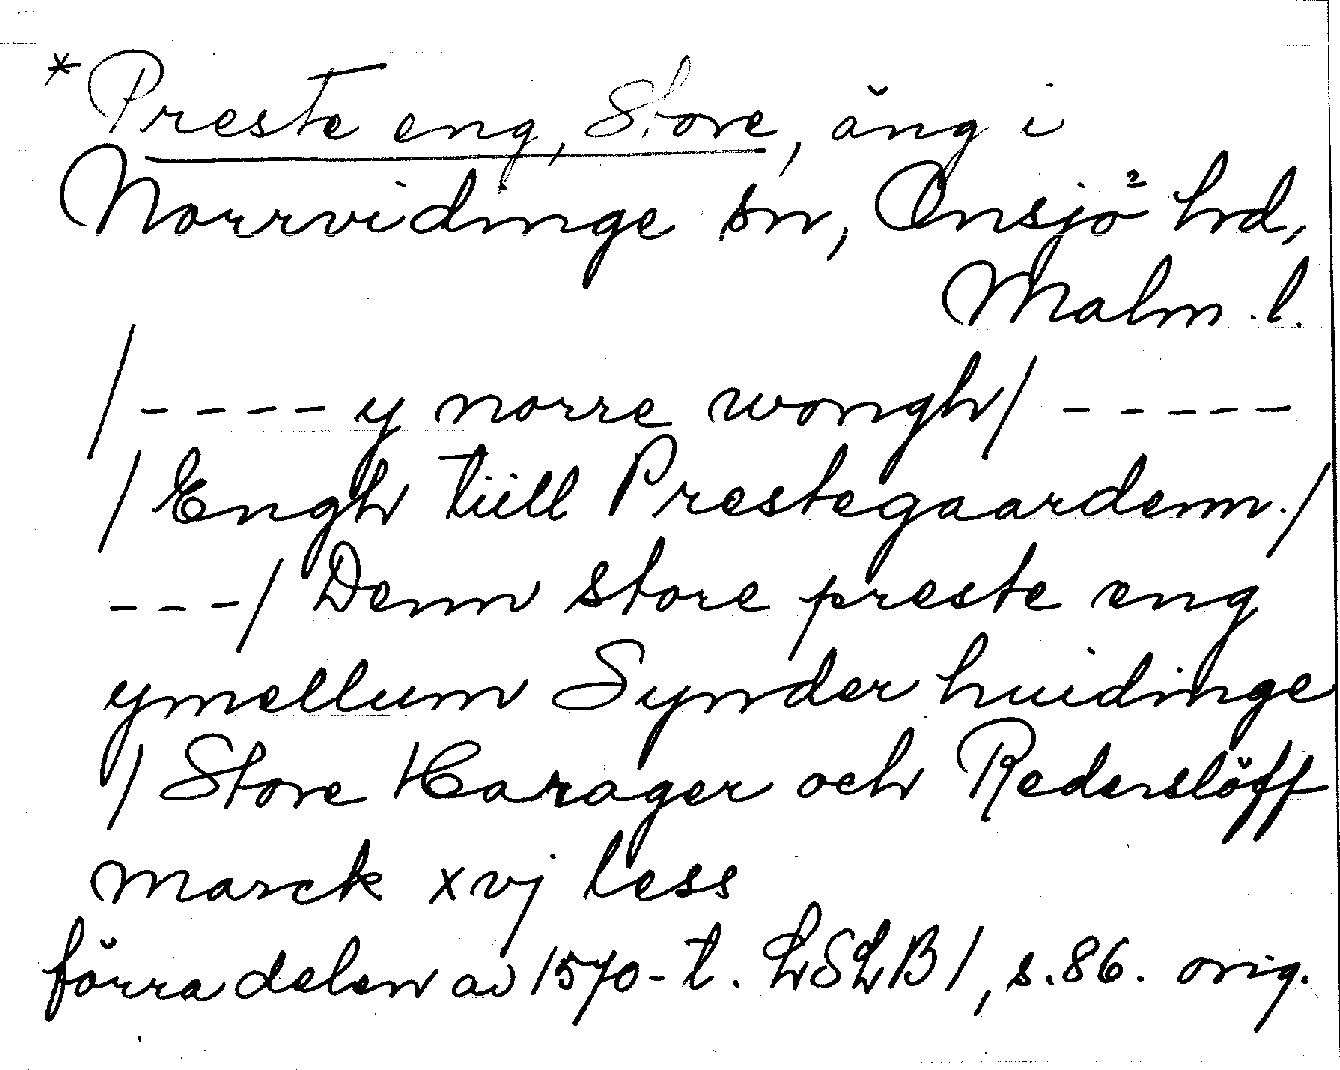 *Preste eng, Store, äng i
Norrvidinge sn, Onsjö hrd,
Malm. l.
/---- y norre wongh/ -----
/Engh tiill Prestegaardenn./
---/ Denn store preste eng
ymellum Synder huidinge
/ Store Harager och Rederslöff
marck xvj less
förra delen av 1570-t. LSLB 1, s. 86. orig.